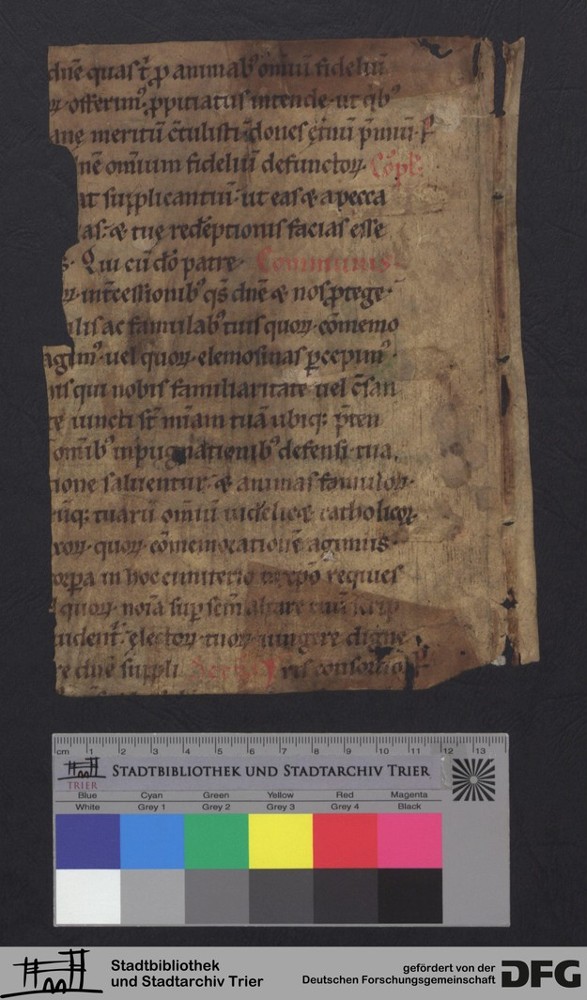 dn̄e quas t̄ ꝓ animab' om̄iū fideliū
offerim'. ꝓpitiatus intende. ut qb'
ane meritū ctulisti. dones &
nē omnium fidelium defunctoꝝ. Cōpl:
at supplicantiū. ut eas & a pecca
as. & tuę redēptionis facias esse
s. Qui cū dō patre. Communis.
int̄cessionib' qs dn̄e & nos ꝓtege.
lis ac famulab' tuis quoꝝ cōmemo
agim'. uel quoꝝ elemosinas ꝑcepim'.
is qui nobis familiaritate uel csan
te iuncti st̄ mīam tuā ubiq; p̄ten
omīb' inpugnationib' defensi tua.
ione saluentur. & animas famuloꝝ.
q; tuarū omniū uidelic& catholicoꝝ
quoꝝ cōmemorationē agimus.
corpa in hoc cimiterio in xpō requies
quoꝝ noīa sup scm altare tuū scrip
uident'. electoꝝ tuoꝝ iungere digne
re dn̄e suppli ris consortio. P
cm 1 2 3 4 5 6 7 8 9 10 11 12 13
TRIER STADTBIBLIOTHEK UND STADTARCHIV TRIER
Blue Cyan Green Yellow Red Magenta
White Grey 1 Grey 2 Grey 3 Grey 4 Black
Stadtbibliothek
und Stadtarchiv Trier
gefördert von der
Deutschen Forschungsgemeinschaft DFG